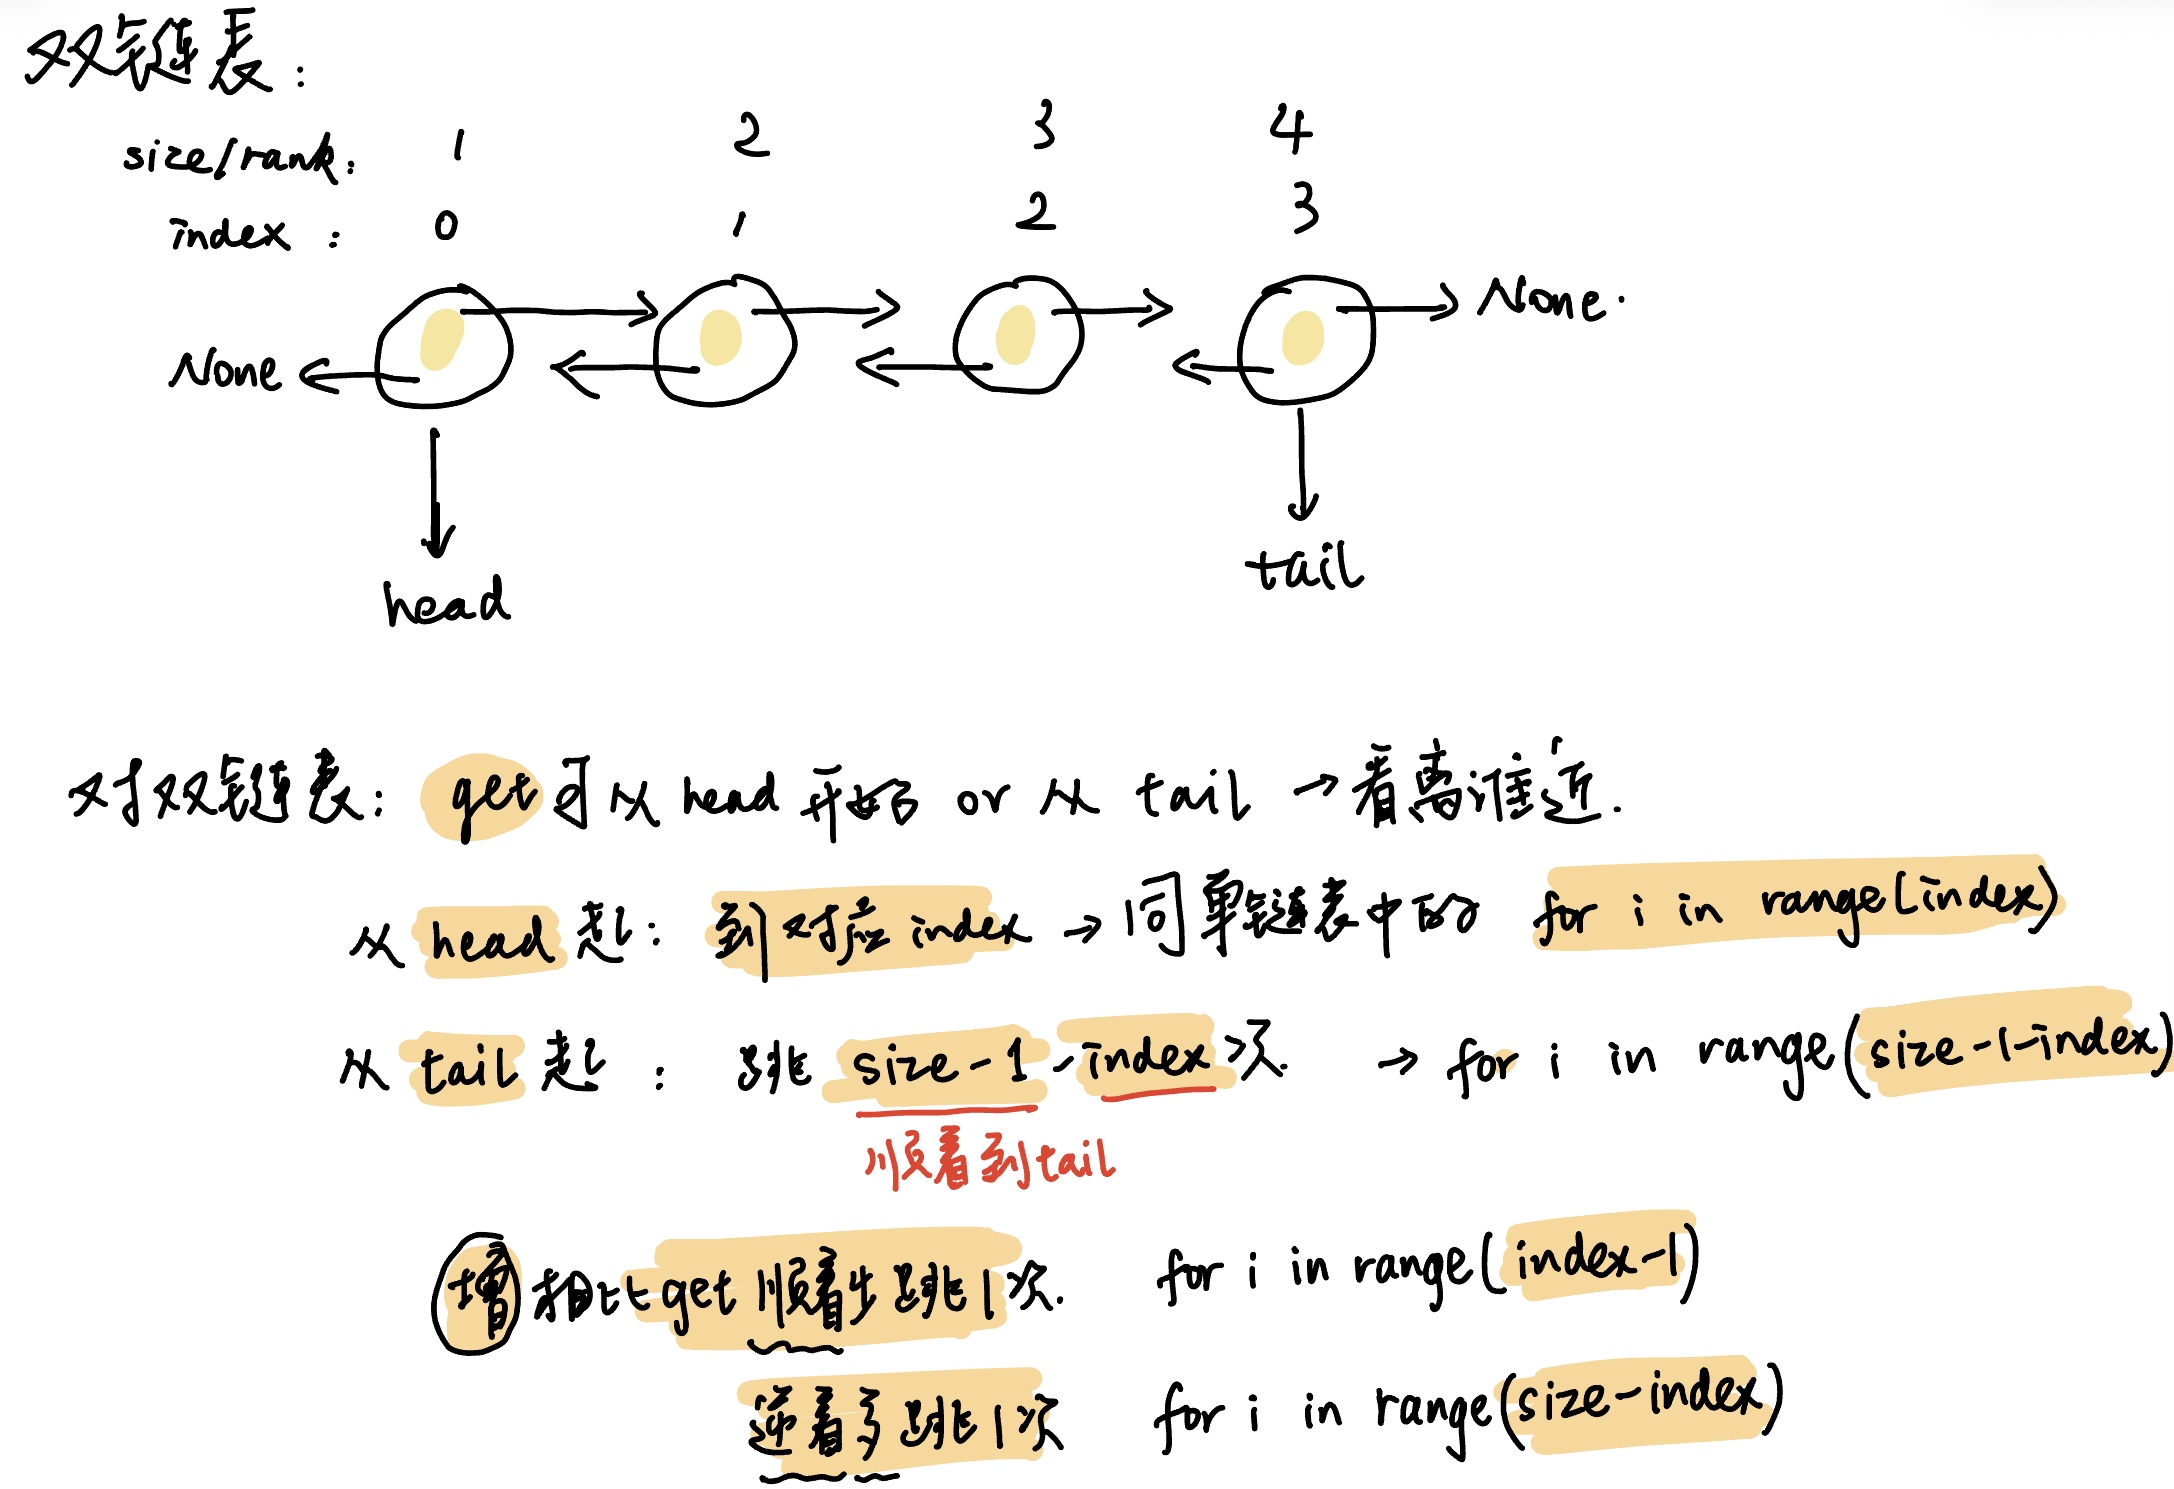 双链表：
size/rank: 1 2 3 4
index : 0 1 2 3
None.
None
head
tail
对双链表: get可从 head 开始 or 从 tail →看离谁近.
从 head 起: 到对应 index → 同单链表中的 for i in range(index)
从 tail 起 : 跳 size-1-index 次. → for i in range(size-1-index)
顺着到tail
增 相比get 顺着少跳1次. for i in range(index-1)
逆着多跳1次 for i in range(size-index)